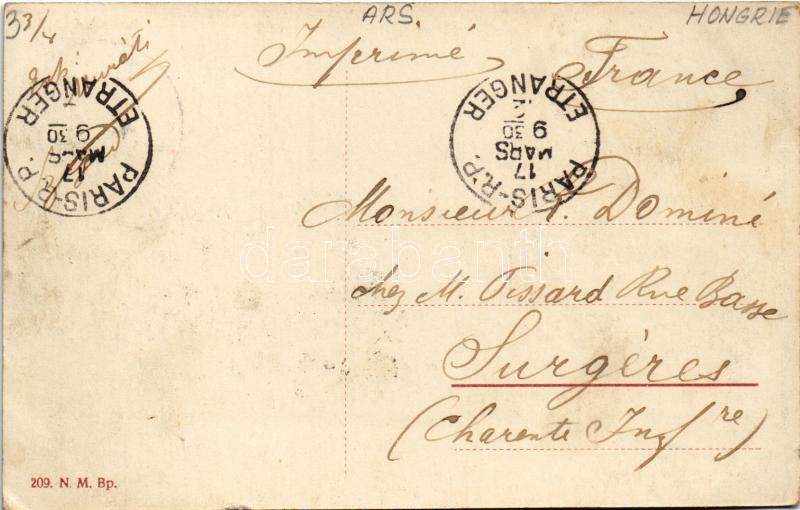 3 3/4
ARS.
HONGRIE
Imprimé
France
PARIS-R.P.
ETRANGER
17
MARS
9 30
PARIS-R.P.
ETRANGER
17
MARS
9 30
12
Monsieur F. Dominé
chez M. Pissard Rue Basse
Surgères
(Charente Infre)
darabanth
209. N. M. Bp.